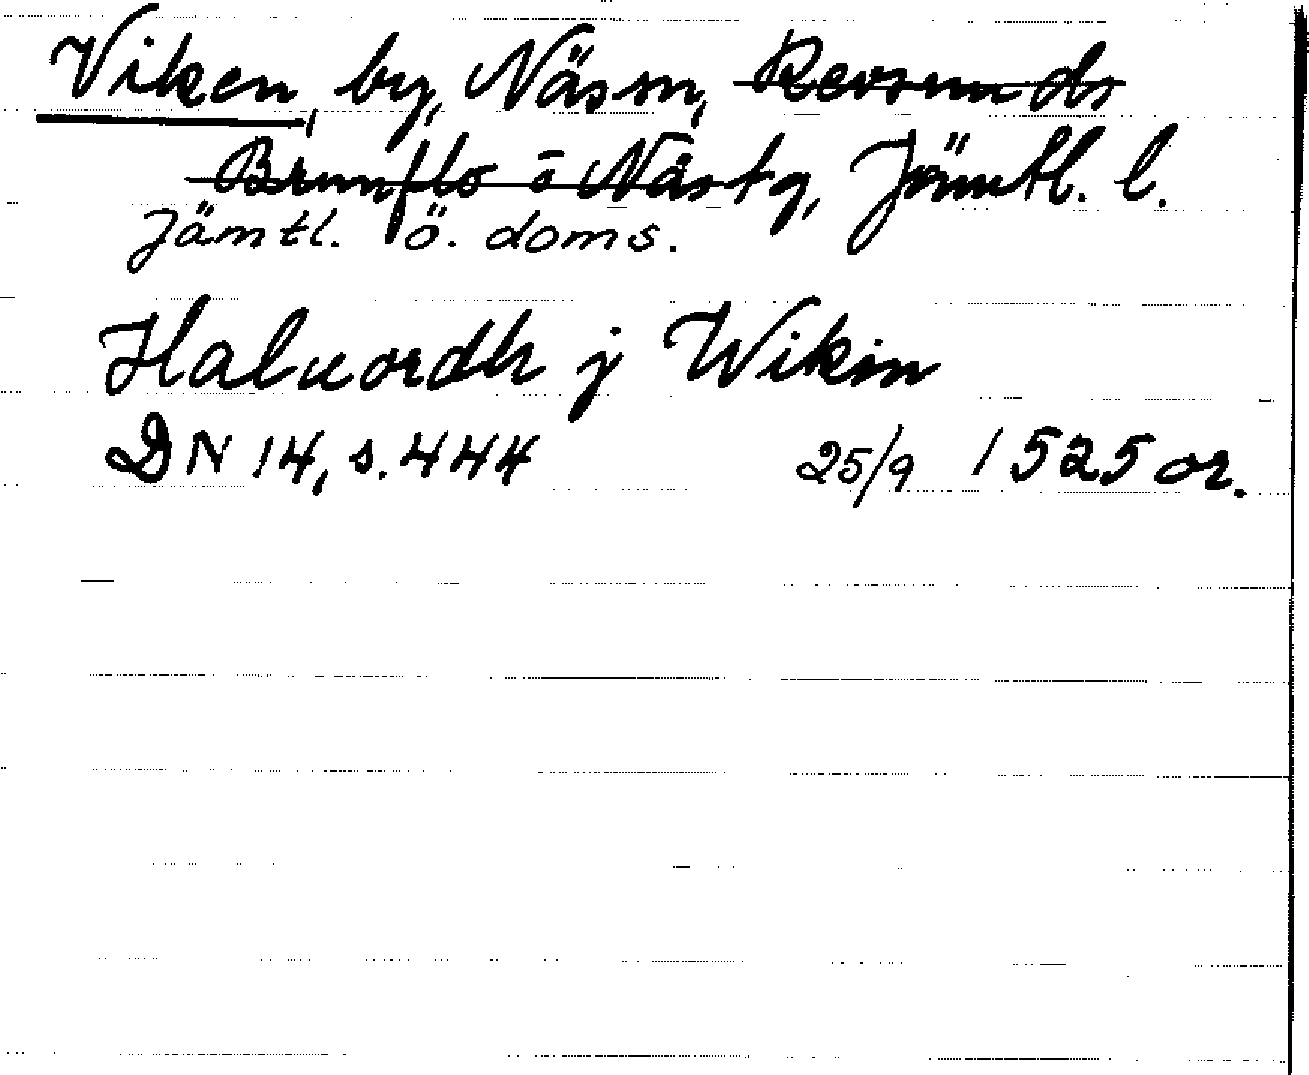 Viken, by, Näs sn, Revsunds
Brunflo o Näs tg, Jämtl. l.
Jämtl. ö. doms.
Haluordh j Wikin
DN 14, s. 444 25/9 1525 or.